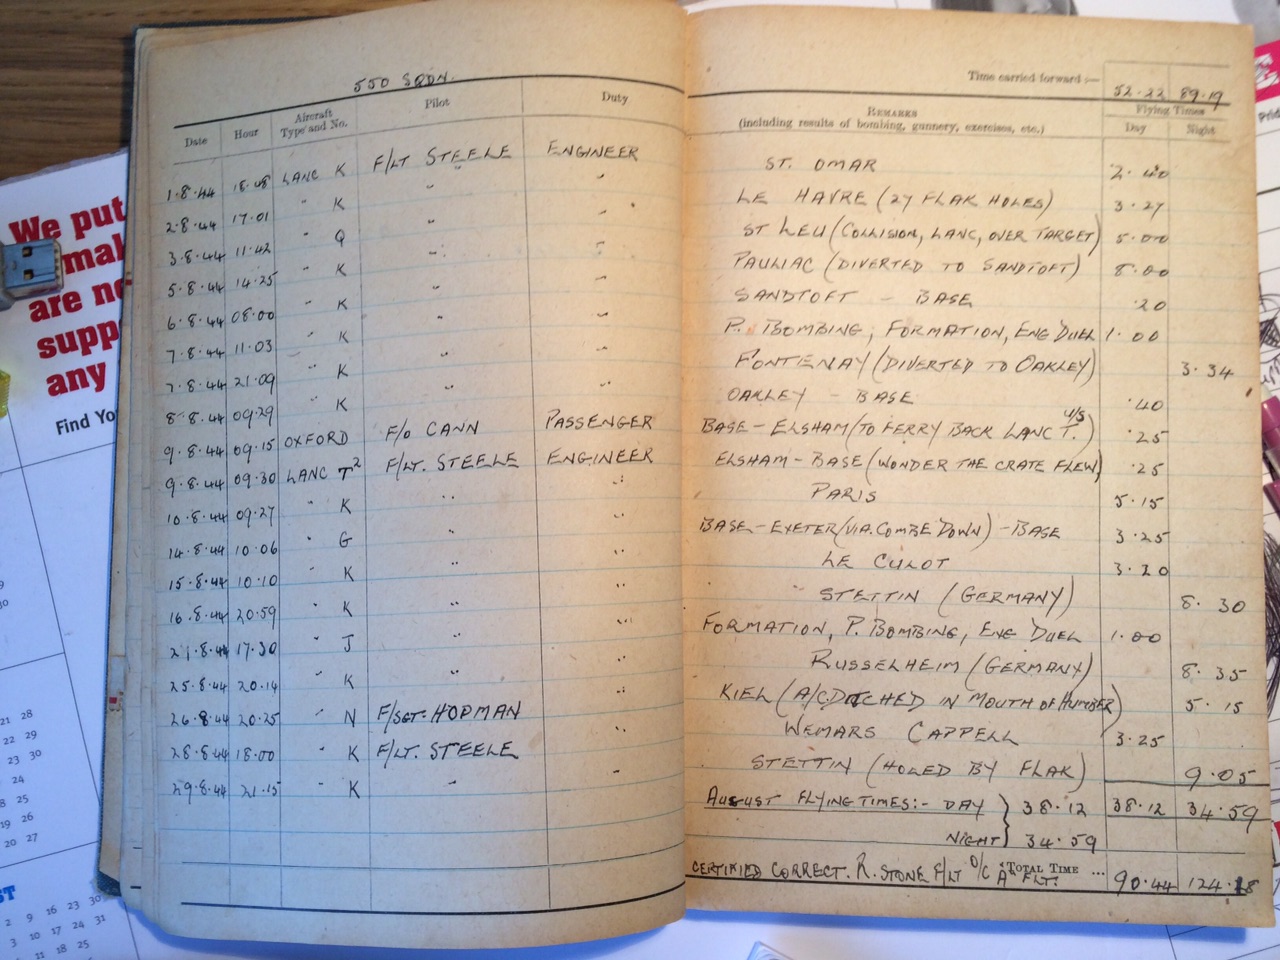 550 SQDN.
Time carried forward :— 52.22 89.19
Date Hour Aircraft Type and No. Pilot Duty REMARKS (including results of bombing, gunnery, exercises, etc.) Flying Times Day Night
1.8.44 18.48 LANC K F/LT STEELE ENGINEER ST. OMAR 2.40
2.8.44 17.01 " K " " LE HAVRE (27 FLAK HOLES) 3.27
3.8.44 11.42 " Q " " ST LEU (COLLISION, LANC, OVER TARGET) 5.00
5.8.44 14.25 " K " " PAULIAC (DIVERTED TO SANDTOFT) 8.00
6.8.44 08.00 " K " " SANDTOFT - BASE .20
7.8.44 11.03 " K " " P. BOMBING, FORMATION, ENG DUEL 1.00
7.8.44 21.09 " K " " FONTENAY (DIVERTED TO OAKLEY) 3.34
8.8.44 09.29 " K " " OAKLEY - BASE .40
9.8.44 09.15 OXFORD F/O CANN PASSENGER BASE - ELSHAM (TO FERRY BACK LANC U/S T.) .25
9.8.44 09.30 LANC T2 F/LT. STEELE ENGINEER ELSHAM - BASE (WONDER THE CRATE FLEW) .25
10.8.44 09.27 " K " " PARIS 5.15
14.8.44 10.06 " G " " BASE - EXETER (VIA. COMBE DOWN) - BASE 3.25
15.8.44 10.10 " K " " LE CULOT 3.20
16.8.44 20.59 " K " " STETTIN (GERMANY) 8.30
21.8.44 17.30 " J " " FORMATION, P. BOMBING, ENG DUEL 1.00
25.8.44 20.14 " K " " RUSSELHEIM (GERMANY) 8.35
26.8.44 20.25 " N F/SGT. HOPMAN " KIEL (A/C DITCHED IN MOUTH OF HUMBER) 5.15
28.8.44 18.00 " K F/LT. STEELE " WEMARS CAPPELL 3.25
29.8.44 21.15 " K " " STETTIN (HOLED BY FLAK) 9.05
AUGUST FLYING TIMES:- DAY } 38.12 38.12 34.59
NIGHT } 34.59
CERTIFIED CORRECT. R. STONE F/LT O/C "A" FLT. TOTAL TIME ... 90.44 124.18
We put
mal
are no
supp
any
Find Yo
21 28
22 29
23 30
24
18 25
19 26
20 27
ST
2 9 16 23 30
3 10 17 24 31
11 18 25